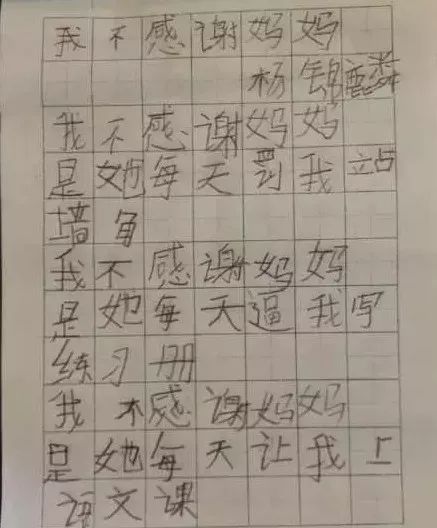 我不感谢妈妈
杨锦麟
我不感谢妈妈
是她每天罚我站
墙角
我不感谢妈妈
是她每天逼我写
练习册
我不感谢妈妈
是她每天让我上
语文课